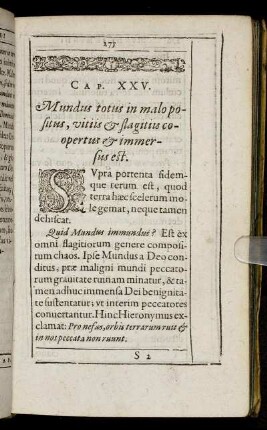 273
CAP. XXV.
Mundus totus in malo po-
situs, vitiis & flagitiis co-
opertus & immer-
sus est.
SVpra portenta fidem-
que rerum est, quod
terra hæc scelerum mo-
le gemat, neque tamen
dehiscat.
Quid Mundus immundus? Est ex
omni flagitiorum genere composi-
tum chaos. Ipse Mundus a Deo con-
ditus, præ maligni mundi peccato-
rum grauitate ruinam minatur, & ta-
men adhuc immensa Dei benignita-
te sustentatur; vt interim peccatores
conuertantur. Hinc Hieronymus ex-
clamat: Pro nefas, orbis terrarum ruit &
in nos peccata non ruunt.
S 2